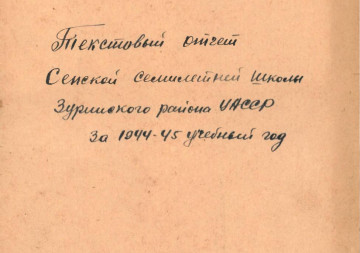 Текстовый отчет
Сепской семилетней школы
Зуринского района УАССР
За 1944-45 учебный год